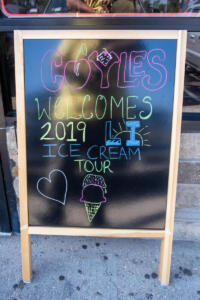 COYLES
WELCOMES
2019 LI
ICE CREAM
TOUR